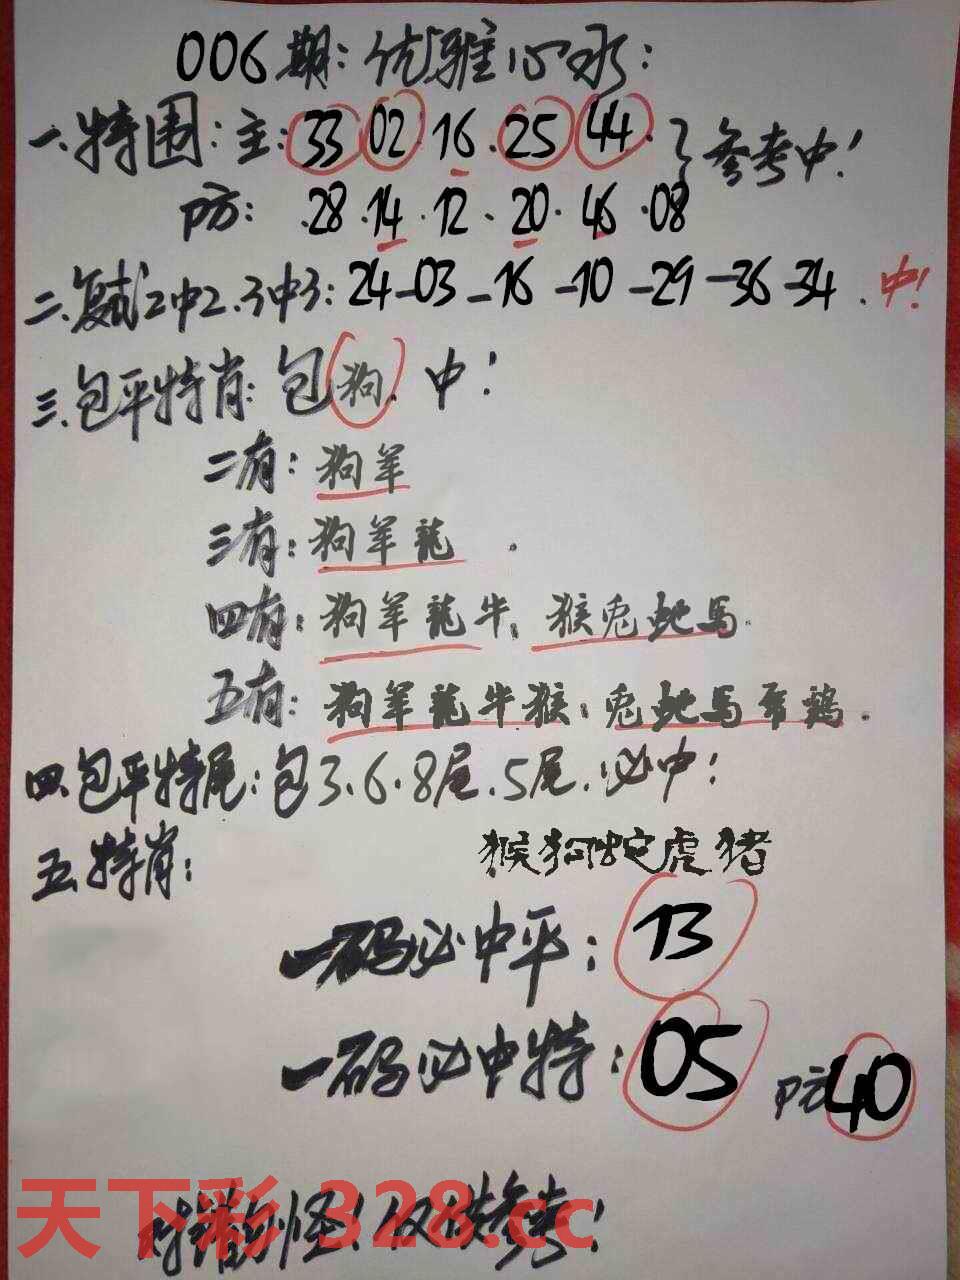 006期:优雅心水:
一.特围:主:33.02.16.25.44.}参考中!
防: .28.14.12.20.46.08
二.复式2中2.3中3:24-03-16-10-29-36-34.中!
三.包平特肖:包狗.中!
二有:狗羊
三有:狗羊龍.
四有:狗羊龍牛;猴兎蛇馬.
五有:狗羊龍牛猴;兎蛇馬鷄.
四.包平特尾:包3.6.8尾.5尾.必中!
五.特肖: 猴狗蛇虎猪
一码必中平:13
一码必中特:05 防40
对错勿怪!仅供参考!
天下彩 328.cc